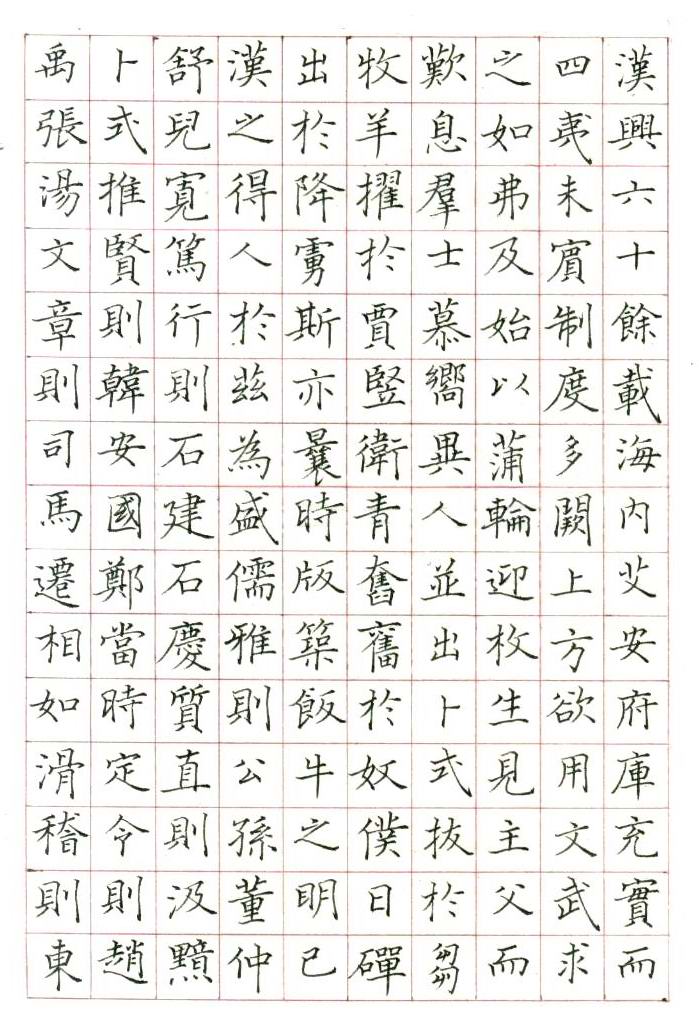 漢興六十餘載海內艾安府庫充實而
四夷未賓制度多闕上方欲用文武求
之如弗及始以蒲輪迎枚生見主父而
歎息羣士慕嚮異人並出卜式拔於芻
牧羊擢於賈豎衛青奮舊於奴僕日磾
出於降虜斯亦曩時版築飯牛之明已
漢之得人於茲為盛儒雅則公孫董仲
舒兒寬篤行則石建石慶質直則汲黯
卜式推賢則韓安國鄭當時定令則趙
禹張湯文章則司馬遷相如滑稽則東